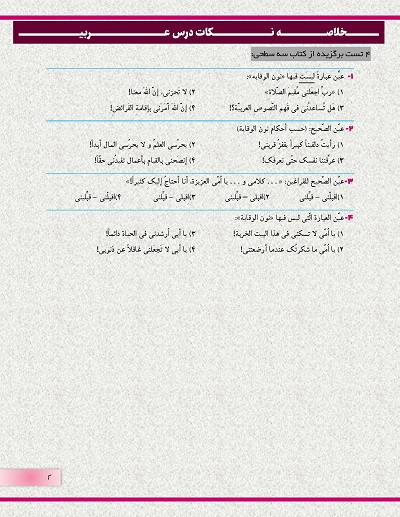 خلاصه نکات درس عربی
۴ تست برگزیده از کتاب سه سطحی:
۱- عیّن عبارةً لیست فیها «نون الوقایه»:
۱) «ربِّ اجعلنی مقیم الصّلاة» ۲) لا تحزنی، إنّ اللّه معنا!
۳) هل تُساعدنُی فی فهم النّصوص العربیّة؟! ۴) إنّ اللّه أمرنی بإقامة الفرائض!
۲- عیّن الصّحیح: (حسب أحکام نون الوقایة)
۱) رأیتُ دلفیناً کبیراً یقفز قربنی! ۲) یحرسنی العلمُ و لا یحرسنی المال أبداً!
۳) عرّفتنا نفسک حتّی نعرفک! ۴) إنصحنی بالقیام بأعمال تفیدنُی حقّاً!
۳- عیّن الصّحیح للفراغین: «... کلامی و ... یا أمّی العزیزة، أنا أحتاجُ إلیک کثیراً!»
۱) اقبلنی – قبلنی ۲) اقبلی – قبلینی ۳) اقبلی – قبلنی ۴) اقبلنی – قبلینی
۴- عیّن العبارة الّتی لیس فیها «نون الوقایة»:
۱) یا أمّی لا تسکنی فی هذا البیت الخربة! ۳) یا أبی أرشدنی فی الحیاة دائماً!
۲) یا أمّی ما شکرتُک عندما أرضعتنی! ۴) یا أبی لا تجعلنی غافلاً عن ذنوبی!
۲